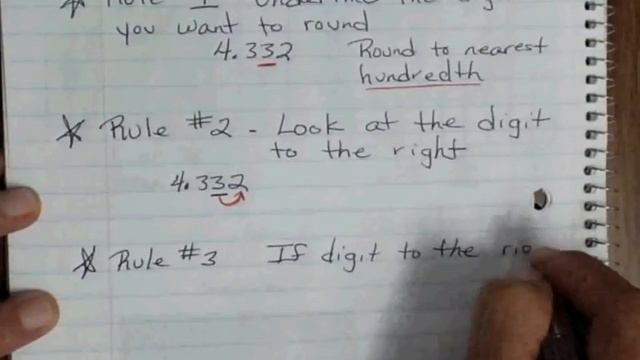 you want to round
4.332 Round to nearest
hundredth
* Rule #2 - Look at the digit
to the right
4.332
* Rule #3 If digit to the